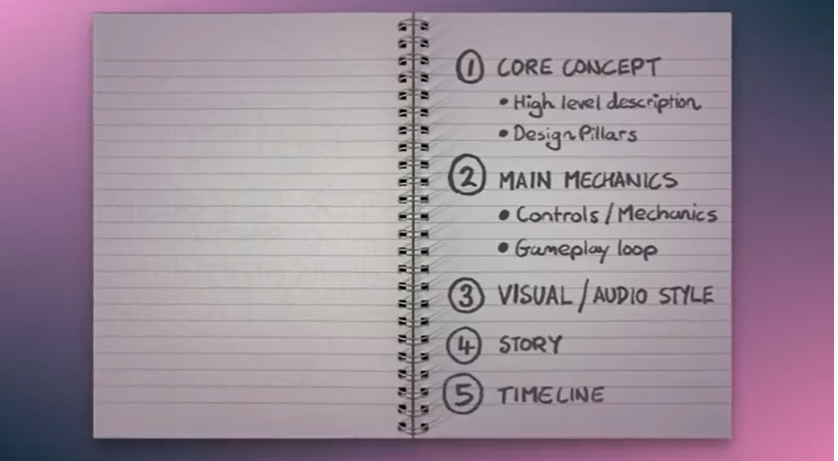 ① CORE CONCEPT
• High level description
• Design Pillars
② MAIN MECHANICS
• Controls / Mechanics
• Gameplay loop
③ VISUAL / AUDIO STYLE
④ STORY
⑤ TIMELINE